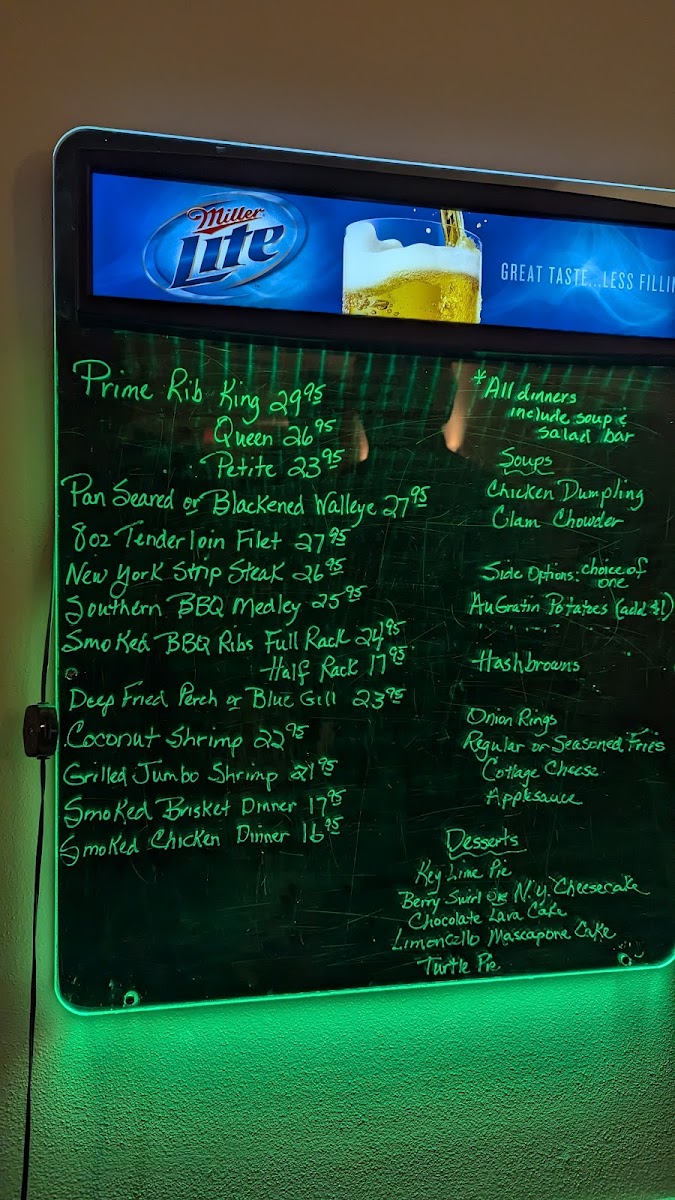 Miller
Lite
GREAT TASTE...LESS FILLIN
Prime Rib King 29.95
Queen 26.95
Petite 23.95
Pan Seared or Blackened Walleye 27.95
8oz Tenderloin Filet 27.95
New York Strip Steak 26.95
Southern BBQ Medley 25.95
Smoked BBQ Ribs Full Rack 24.95
Half Rack 17.95
Deep Fried Perch or Blue Gill 23.95
Coconut Shrimp 22.95
Grilled Jumbo Shrimp 21.95
Smoked Brisket Dinner 17.95
Smoked Chicken Dinner 16.95
*All dinners
include soup &
salad bar
Soups
Chicken Dumpling
Clam Chowder
Side Options: choice of
one
AuGratin Potatoes (add $1)
Hashbrowns
Onion Rings
Regular or Seasoned Fries
Cottage Cheese
Applesauce
Desserts
Key Lime Pie
Berry Swirl or N.Y. Cheesecake
Chocolate Lava Cake
Limoncello Mascapone Cake
Turtle Pie